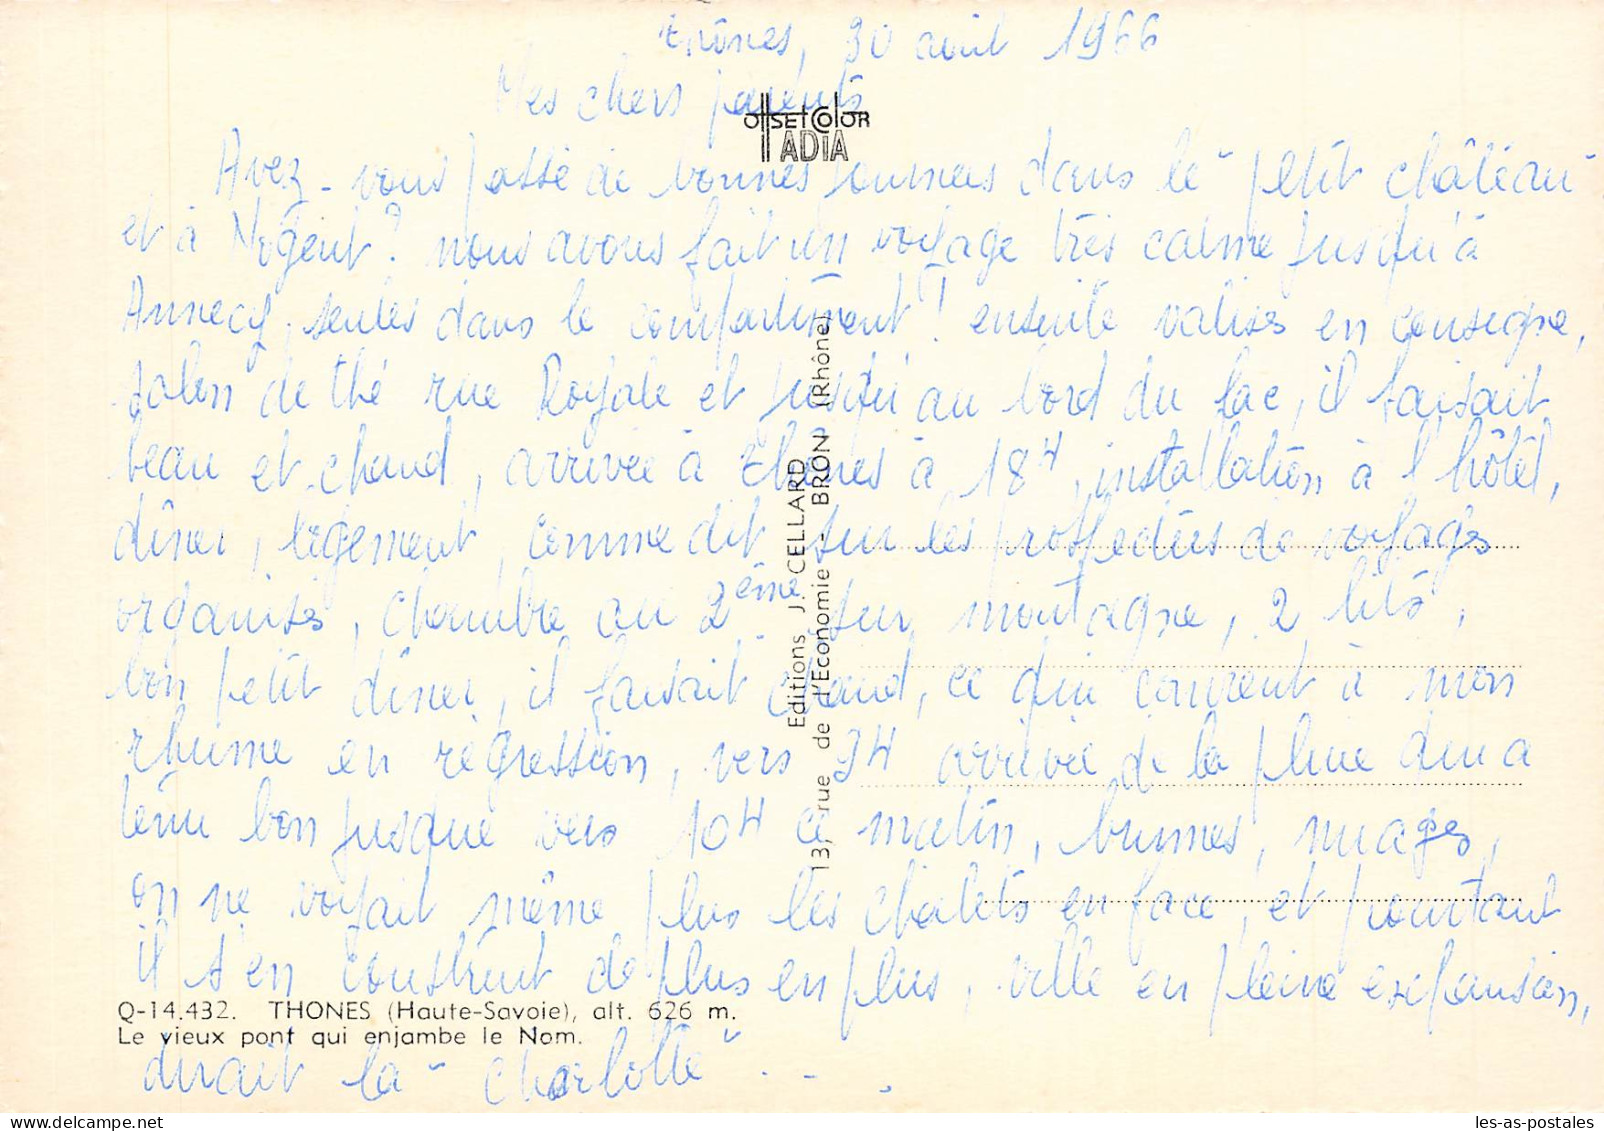 Thônes, 30 août 1966
Mes chers parents
OffSEt COlOR
ADiA
Avez-vous passé de bonnes journées dans le "petit château"
et à Nogent? nous avons fait un voyage très calme jusqu'à
Annecy, seules dans le compartiment! ensuite valises en consigne,
salon de thé rue Royale et jusqu'au bord du lac, il faisait
beau et chaud, arrivée à Thônes à 18H, installation à l'hôtel,
dîner, logement, comme dit sur les prospectus de voyages
organisés, chambre au 2ème sur montagne, 2 lits,
bon petit dîner, il faisait chaud, ce qui convient à mon
rhume en régression, vers 9H arrivée de la pluie qui a
tenu bon jusque vers 10H ce matin, brumes, nuages,
on ne voyait même plus les chalets en face, et pourtant
il s'en construit de plus en plus, ville en pleine expansion,
dirait la "Charlotte" ...
Editions J. CELLARD
13, rue de l'Economie - BRON (Rhône)
Q-14.432. THONES (Haute-Savoie), alt. 626 m.
Le vieux pont qui enjambe le Nom.
les-as-postales